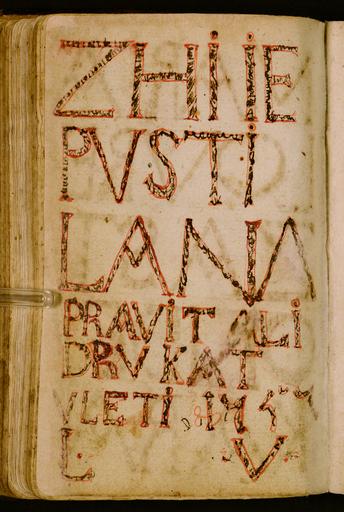 ZHIIE
PVSTI
LANA
PRAVITALI
DRVKAT
VLETI
L. V